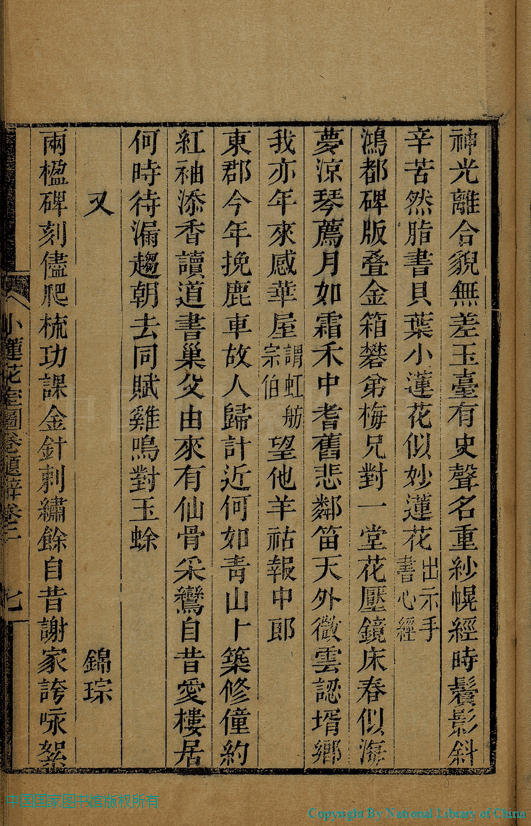 神光離合貌無差玉臺有史聲名重紗幌經時鬢影斜
辛苦然脂書貝葉小蓮花似妙蓮花出示手書心經
鴻都碑版叠金箱礬弟梅兄對一堂花壓鏡床春似海
夢凉琴薦月如霜禾中耆舊悲鄰笛天外微雲認壻鄉
我亦年來感華屋謂虹舫宗伯望他羊祜報中郎
東郡今年挽鹿車故人歸計近何如青山卜築修僮約
紅袖添香讀道書巢父由來有仙骨采鸞自昔愛樓居
何時待漏趨朝去同賦雞鳴對玉蜍
又
錦琮
兩楹碑刻儘爬梳功課金針刺繡餘自昔謝家誇咏絮
小蓮花室圖卷題辭卷二
七
中国国家图书馆版权所有
Copyright By National Library of China